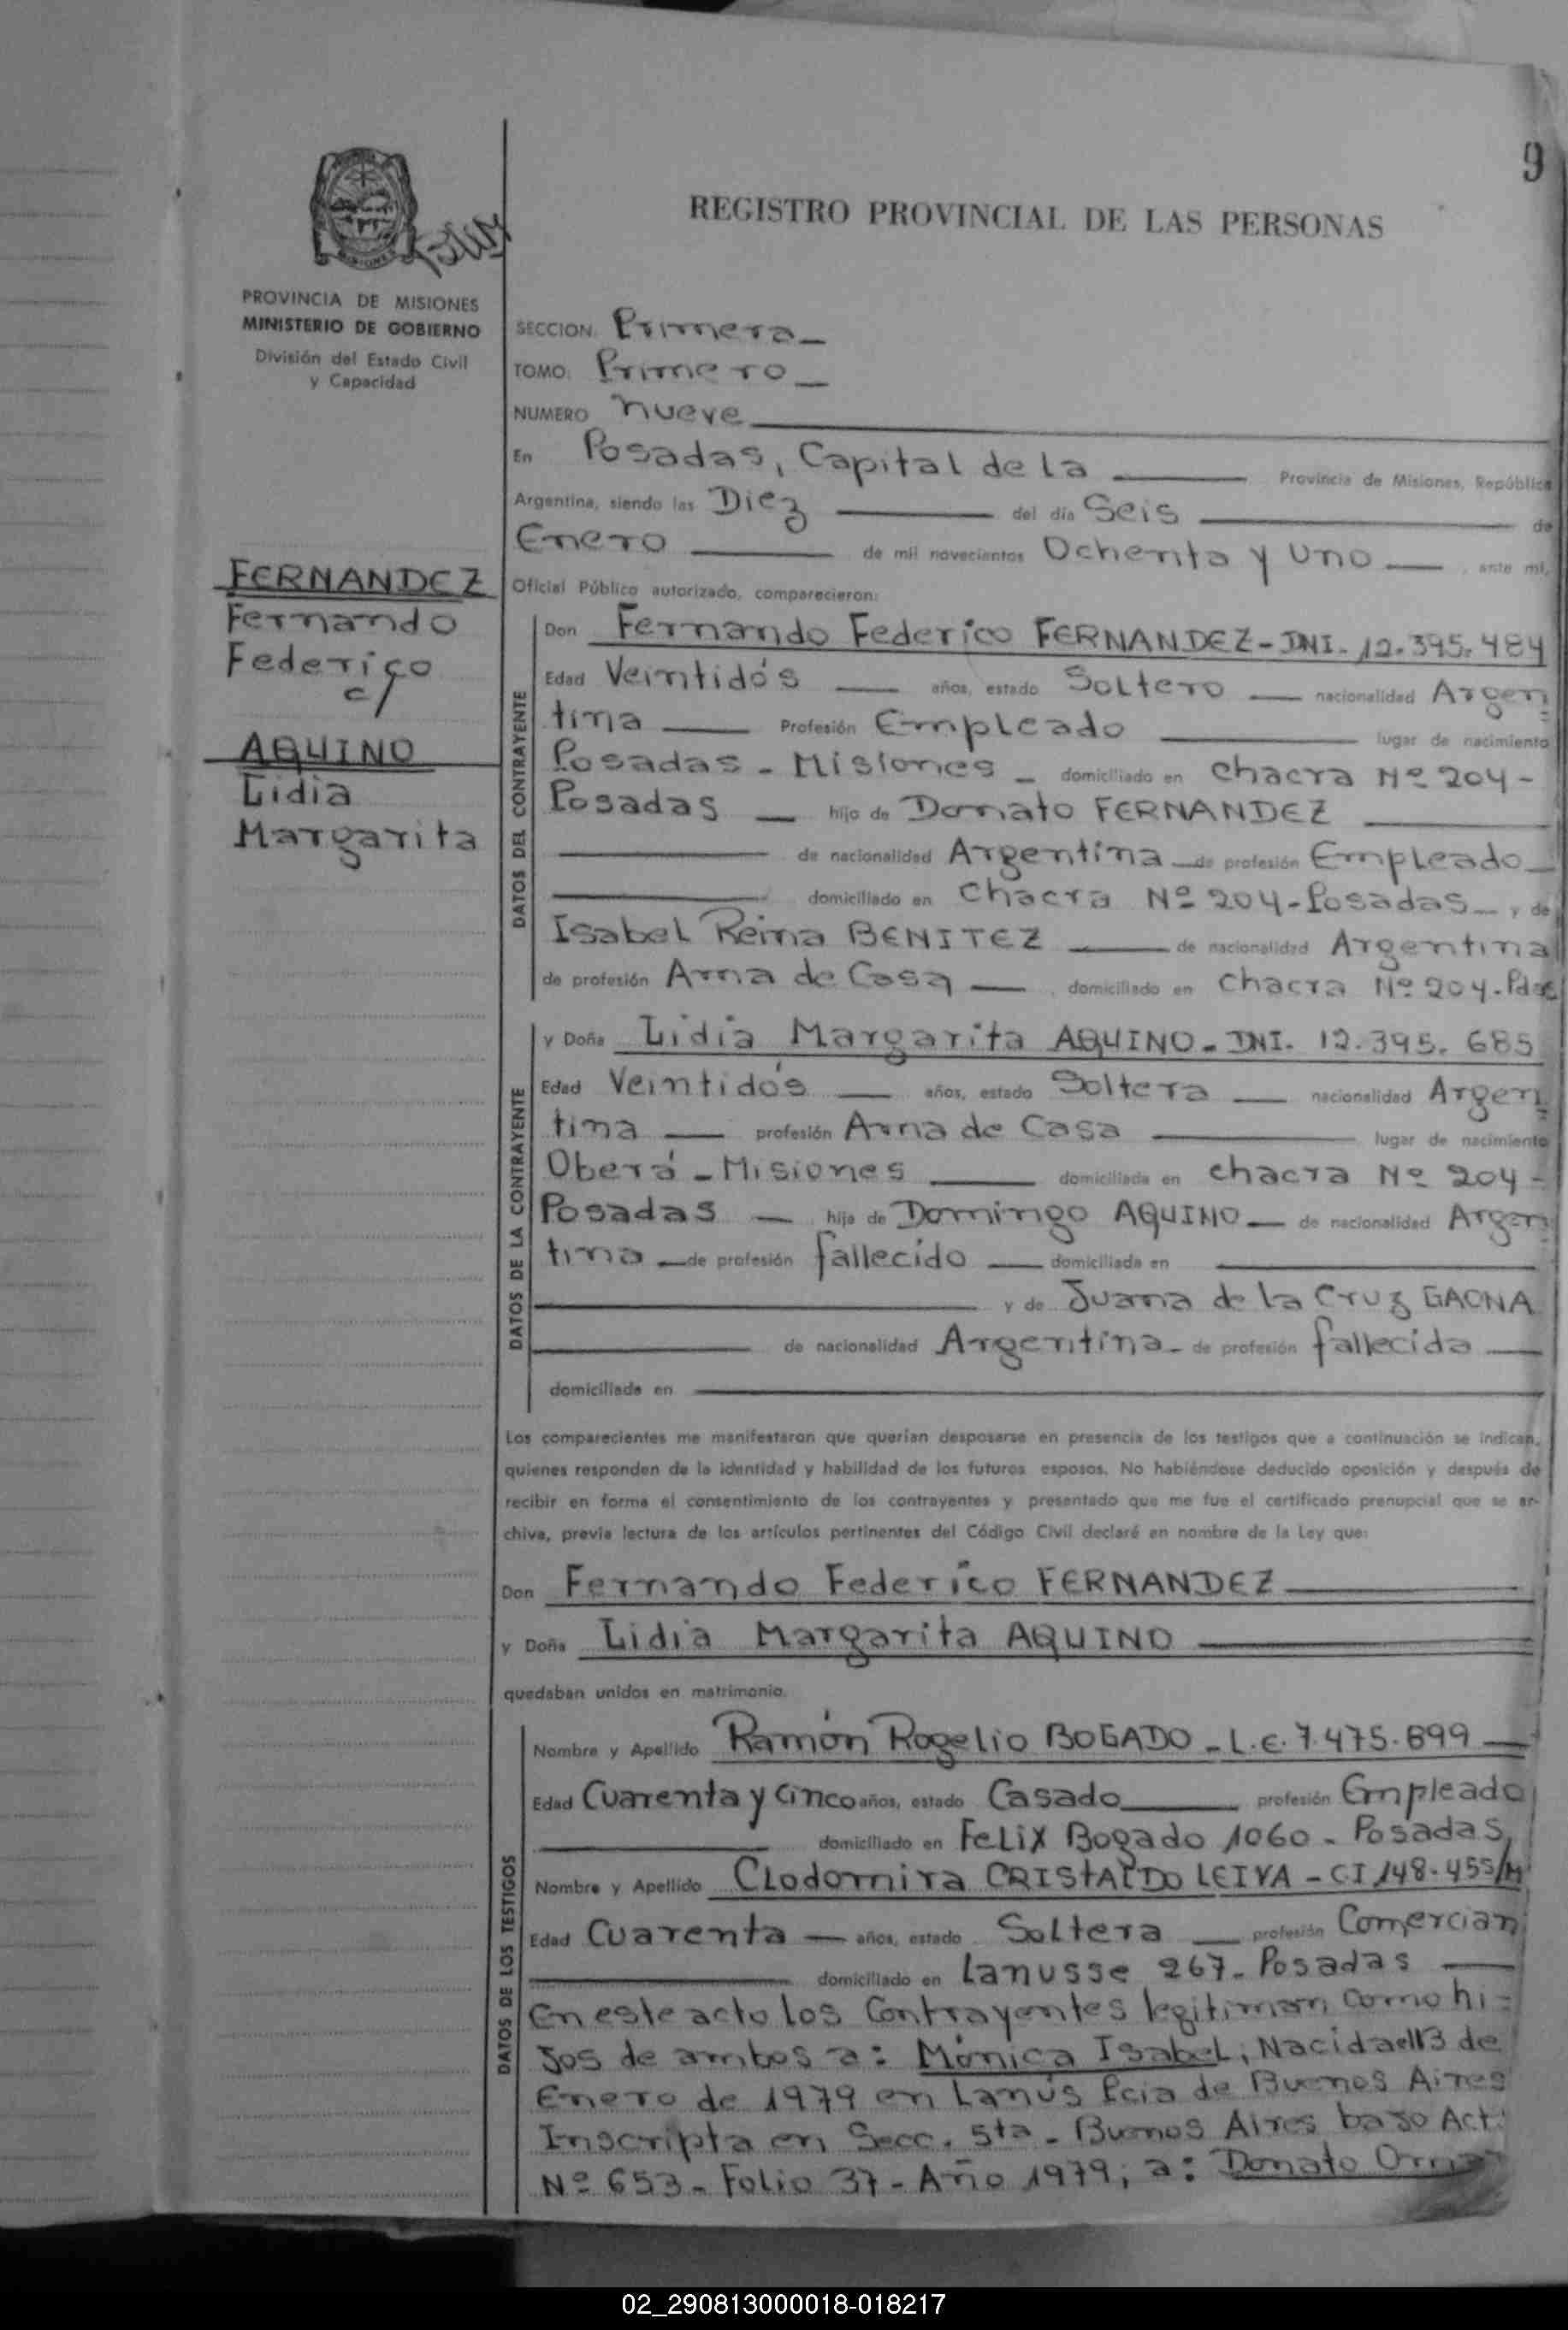 9
REGISTRO PROVINCIAL DE LAS PERSONAS
MISIONES
PROVINCIA DE MISIONES
MINISTERIO DE GOBIERNO
División del Estado Civil
y Capacidad
FERNANDEZ
Fernando
Federico
c/
AQUINO
Lidia
Margarita
SECCION Primera
TOMO: Primero
NUMERO nueve
En Posadas, Capital de la Provincia de Misiones, República
Argentina, siendo las Diez del día Seis de
Enero de mil novecientos Ochenta y uno, ante mí,
Oficial Público autorizado, comparecieron:
DATOS DEL CONTRAYENTE
Don Fernando Federico FERNANDEZ - DNI. 12.395.484
Edad Veintidós años, estado Soltero nacionalidad Argen
tina Profesión Empleado lugar de nacimiento
Posadas - Misiones - domiciliado en chacra Nº 204 -
Posadas hijo de Donato FERNANDEZ
de nacionalidad Argentina de profesión Empleado
domiciliado en Chacra Nº 204 - Posadas y de
Isabel Reina BENITEZ de nacionalidad Argentina
de profesión Ama de Casa domiciliado en Chacra Nº 204 - Pdas
DATOS DE LA CONTRAYENTE
y Doña Lidia Margarita AQUINO - DNI. 12.395.685
Edad Veintidós años, estado Soltera nacionalidad Argen
tina profesión Ama de Casa lugar de nacimiento
Oberá - Misiones domiciliada en chacra Nº 204 -
Posadas hija de Domingo AQUINO de nacionalidad Argen
tina de profesión fallecido domiciliada en
y de Juana de la Cruz GAONA
de nacionalidad Argentina - de profesión fallecida
domiciliada en
Los comparecientes me manifestaron que querían desposarse en presencia de los testigos que a continuación se indican,
quienes responden de la identidad y habilidad de los futuros esposos. No habiéndose deducido oposición y después de
recibir en forma el consentimiento de los contrayentes y presentado que me fue el certificado prenupcial que se ar-
chiva, previa lectura de los artículos pertinentes del Código Civil declaré en nombre de la Ley que:
Don Fernando Federico FERNANDEZ
y Doña Lidia Margarita AQUINO
quedaban unidos en matrimonio.
DATOS DE LOS TESTIGOS
Nombre y Apellido Ramón Rogelio BOGADO - L.E. 7.475.899
Edad Cuarenta y cinco años, estado Casado profesión Empleado
domiciliado en Felix Bogado 1060 - Posadas
Nombre y Apellido Clodomira CRISTALDO LEIVA - C.I 148.455/M
Edad Cuarenta años, estado Soltera profesión Comercian
domiciliado en Lanusse 267 - Posadas
En este acto los Contrayentes legitiman como hi=
jos de ambos a: Mónica Isabel, Nacida el 13 de
Enero de 1979 en Lanús Pcia de Buenos Aires
Inscripta en Secc. 5ta - Buenos Aires bajo Act.
Nº 653 - Folio 37 - Año 1979; a: Donato Omar
02_290813000018-018217